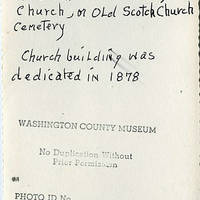 Church, or Old Scotch Church
Cemetery
Church building was
dedicated in 1878
WASHINGTON COUNTY MUSEUM
No Duplication Without
Prior Permission
PHOTO ID No